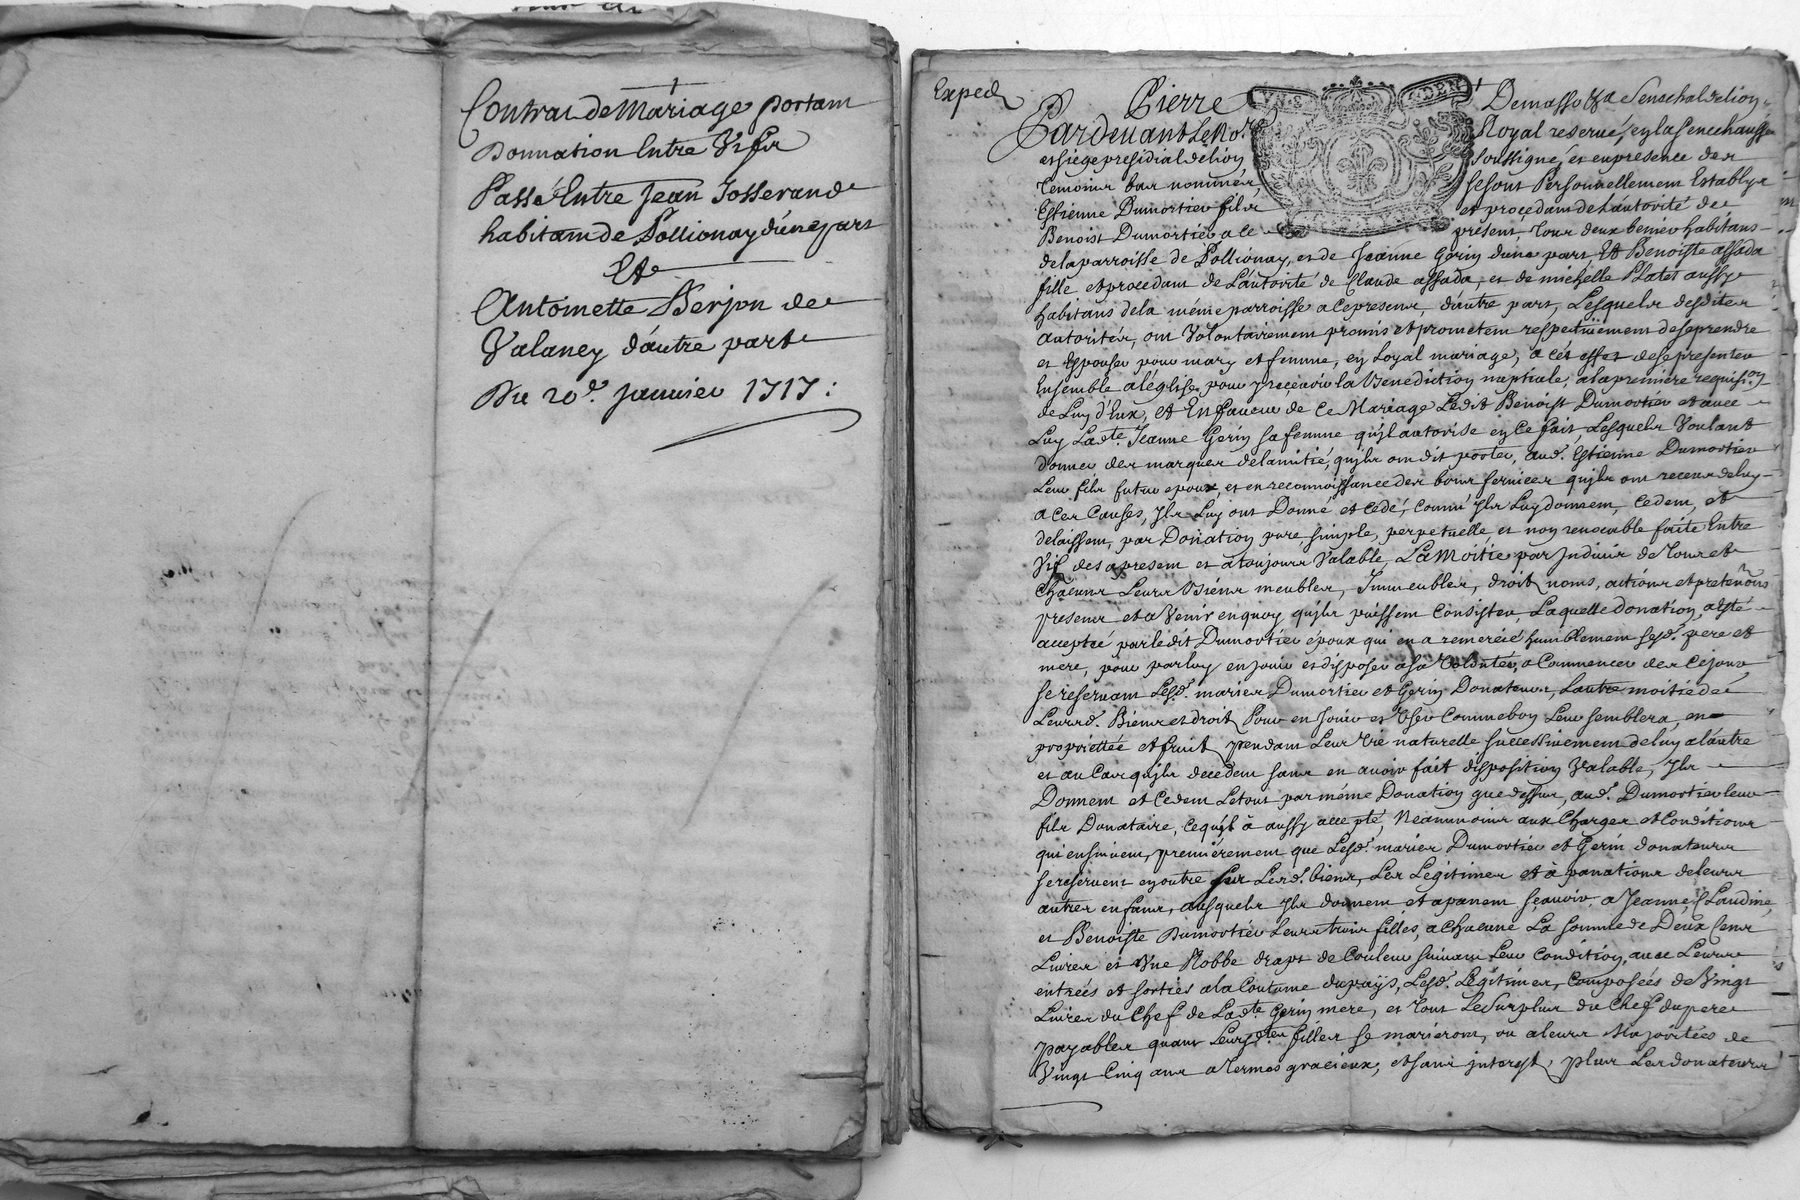 Contrat de Mariage portant
Donnation Entre Vifs
Passé Entre Jean Josserand
habitant de Pollionay d'une part
Et
Antoinette Berjon de
Valaney d'autre part
Du 20e. Janvier 1717 :
Exped
Pierre Demasso &a Senechal de lion
Pardevant Le No.re Royal reservé, en la senechaussée
et siege presidial de lion soussigné, et en presence des
temoins bas nommés, se sont Personnellement Establys
Estienne Dumortier fils et procedant de l'autorité de
Benoist Dumortier a ce present, tous deux habitans
de la parroisse de Pollionay, et de Jeanne Gerin d'une part, Et Benoiste assada
fille et procedant de L'autorité de Claude assada, et de michelle Platet aussy
habitans de la méme parroisse a ce presens, d'autre part, Lesquels desdites
autorités, ont Volontairement promis et prometent respectivement de se prendre
et Epouser pour mary et femme, en Loyal mariage, a cét effet de se presenter
Ensemble a l'église pour y recevoir la Benediction nuptiale, a la premiere requision
de L'un d'Eux, Et En faveur de Ce Mariage Ledit Benoist Dumortier et avec
Luy Ladte. Jeanne Gerin sa femme qu'il autorise en Ce fait, Lesquels Voulant
donner des marques de l'amitié, qu'ils ont dit porter, aud. Estienne Dumortier
Leur fils futur epoux, et en reconnoissance des bons services qu'ils ont receus de luy
a Ces Causes, Ils Luy ont Donné et cedé, comm' Ils Luy donnent, cedent, et
delaissent, par Donation pure, simple, perpetuelle, et non revocable faite Entre
Vifs des a present et a toujours Valable, La Moitié par Indivis de Tous et
Chacuns Leurs Biens meubles, Immeubles, droits, noms, actions et pretentions
presens et a Venir en quoy qu'ils puissent Consister, Laquelle donation, a esté
acceptée par le dit Dumortier époux qui en a remercié humblement sesd. pere et
mere, pour par luy en jouir et disposer a sa volonté, a Commencer des Ce jour
se reservant Lesd. mariés Dumortier et Gerin Donateurs, L'autre moitié de
Leursd. Biens et droits Pour en Jouir et User Comme bon Leur semblera, en
proprietée et fruits pendant Leur Vie naturelle successivement de luy a l'autre
et au Cas qu'ils decedent sans en avoir fait disposition Valable, Ils
Donnent et Cedent Le tout par méme Donation que dessus, aud. Dumortier leur
fils Donataire, ce qu'il à aussy accepté, Neanmoins aux Charges et Conditions
qui ensuivent, premiérement que Lesd. mariés Dumortier et Gerin donateurs
se reservent en outre sur Lesd. biens, Les Legitimes et àpanations de leurs
autres enfans, ausquels Ils donnent et apanent sçavoir, a Jeanne, Claudine,
et Benoiste Dumortier Leurs trois filles, a Chacune La somme de Deux Cens
Livres et Une Robbe draps de Couleur suivant Leur Condition, avec Leurs
entrées et sorties a la Coutume du païs, Lesd. Légitimes, Composées de Vingt
Livres du Chef de Ladte. Gerin mere, et tout Le surplus du Chef du pere
payables quant Leursd.tes filles se marieront, ou a leurs Majorités de
Vingt Cinq ans a termes gracieux, et sans interest, plus Les donateurs